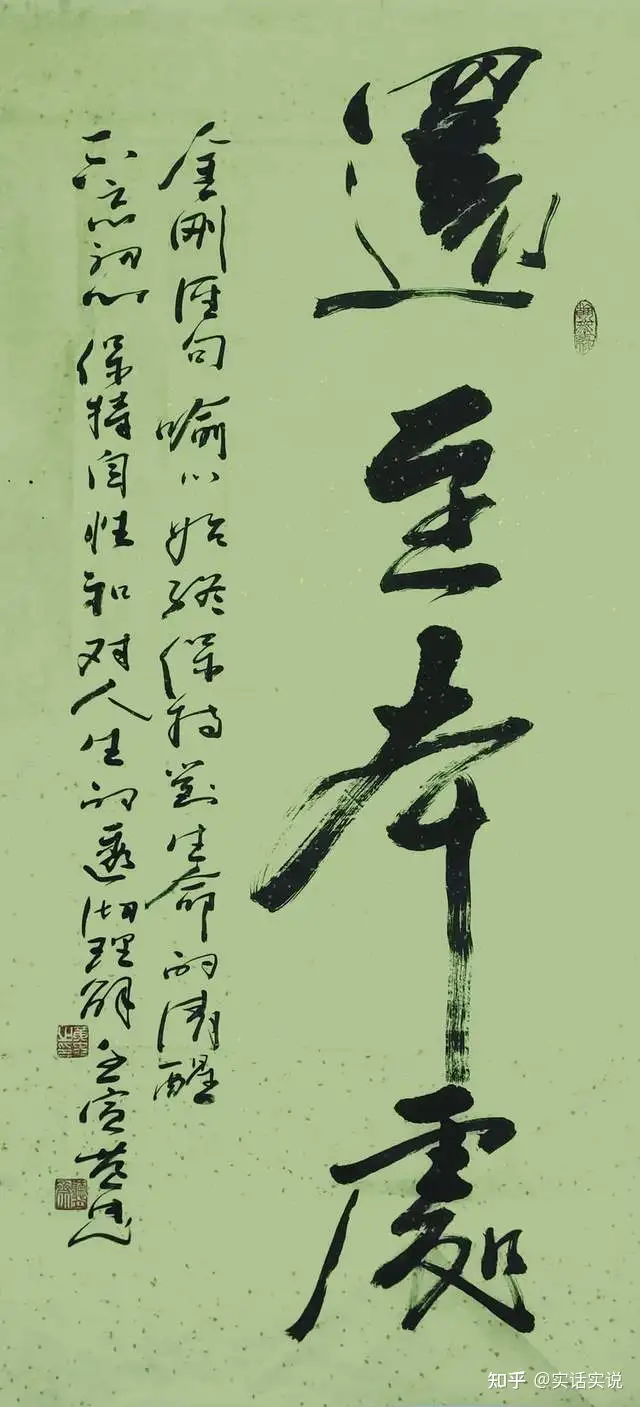 還至本處
金刚經句 喻以始终保持對生命的清醒
不忘初心 保持自性和对人生的彻理解 壬寅
知乎 @实话实说